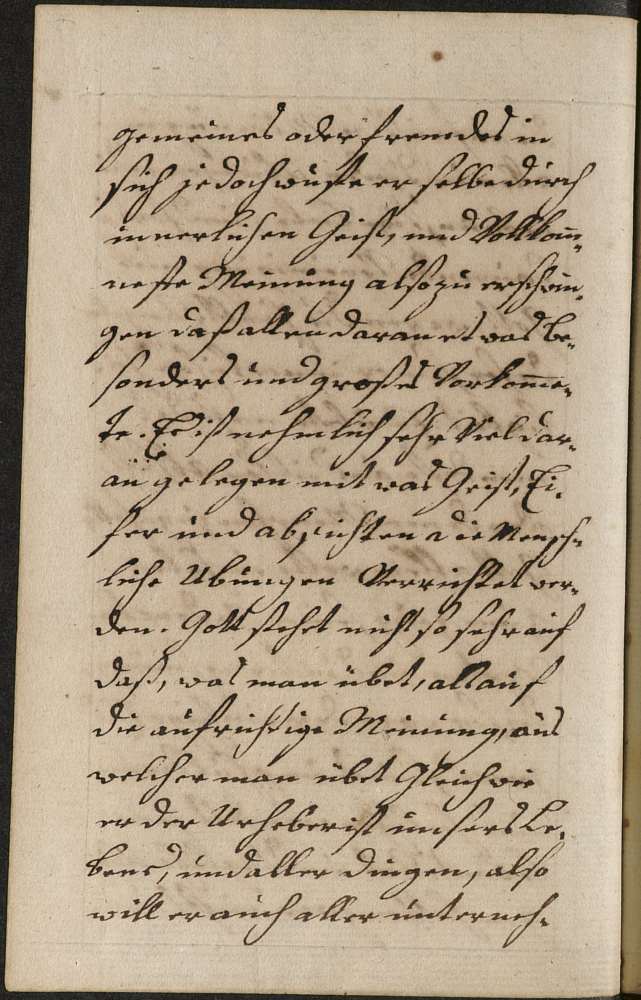 gemeines oder fremdes in
sich jedoch wuste er selbe durch
innerlichen Geist, und Vollkom¯
neste Meinung also zu erschwin¯
gen daß allen daran etwas be¯
sonders und großes Vorkom̄e¯
te. Es ist nehmlich sehr Viel dar¯
an gelegen mit was Geist, Ei¯
fer und absichten die Mensch¯
liche Ubungen Verrichtet wer¯
den. Gott sehet nicht so sehr auf
daß, was man übet, als auf
die aufrichtige Meinung, aus
welcher man übet Gleich wie
er der Urheber ist unsers Le¯
bens, und aller dingen, also
will er auch aller unterneh¯